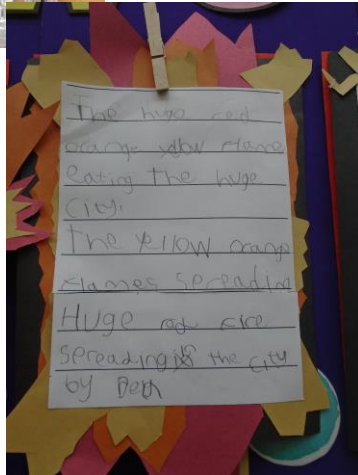 The huge red
orange yellow flame
eating the huge
city.
The yellow orange
flames spreading
Huge red fire
spreading the city
by